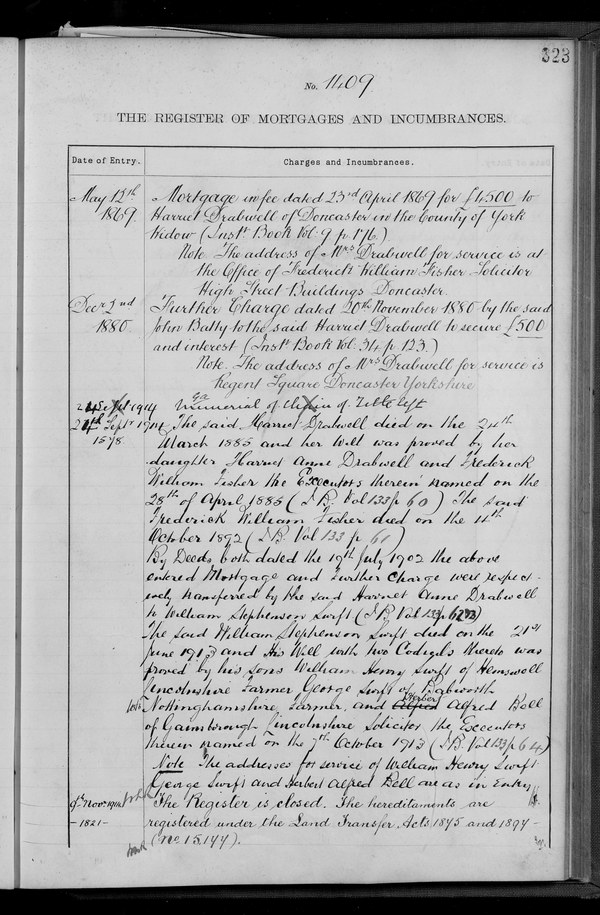 323
No. 1409
THE REGISTER OF MORTGAGES AND INCUMBRANCES.
Date of Entry. Charges and Incumbrances.
May 12th Mortgage in fee dated 23rd April 1869 for £4,500 to
1869 Harriet Drabwell of Doncaster in the County of York
Widow (Inst. Book Vol: 9 p. 176.)
Note. The address of Mrs Drabwell for service is at
the Office of Frederick William Fisher Solicitor
High Street Buildings Doncaster
Decr 2nd Further Charge dated 20th November 1880 by the said
1880 John Batty to the said Harriet Drabwell to secure £500
and interest (Inst. Book Vol: 34 p. 123.)
Note. The address of Mrs Drabwell for service is
Regent Square Doncaster Yorkshire
Sept 1914 Memorial of of
24th Sept 1914 The said Harriet Drabwell died on the 24th
1578 March 1885 and her Will was proved by her
daughter Harriet Anne Drabwell and Frederick
William Fisher the Executors therein named on the
28th of April 1885 (I.B. Vol 133 p 60) The said
Frederick William Fisher died on the 11th
October 1892 (I.B. Vol 133 p 61)
By Deeds both dated the 19th July 1902 the above
entered Mortgage and Further Charge were respect-
ively transferred by the said Harriet Anne Drabwell
to William Stephenson Swift (I.B. Vol 133 p 62)
The said William Stephenson Swift died on the 21st
June 1913 and His Will with two Codicils thereto was
proved by his sons William Henry Swift of Hemswell
Lincolnshire Farmer George Swift of Babworth
Nottinghamshire Farmer and Herbert Alfred Bell
of Gainsborough Lincolnshire Solicitor the Executors
therein named on the 7th October 1913 (I.B. Vol 133 p 64)
Note The addresses for service of William Henry Swift
George Swift and Herbert Alfred Bell are as in Entry
Novr 1914 The Register is closed. The hereditaments are
-1821- registered under the Land Transfer Acts 1875 and 1897-
(No 15,147).